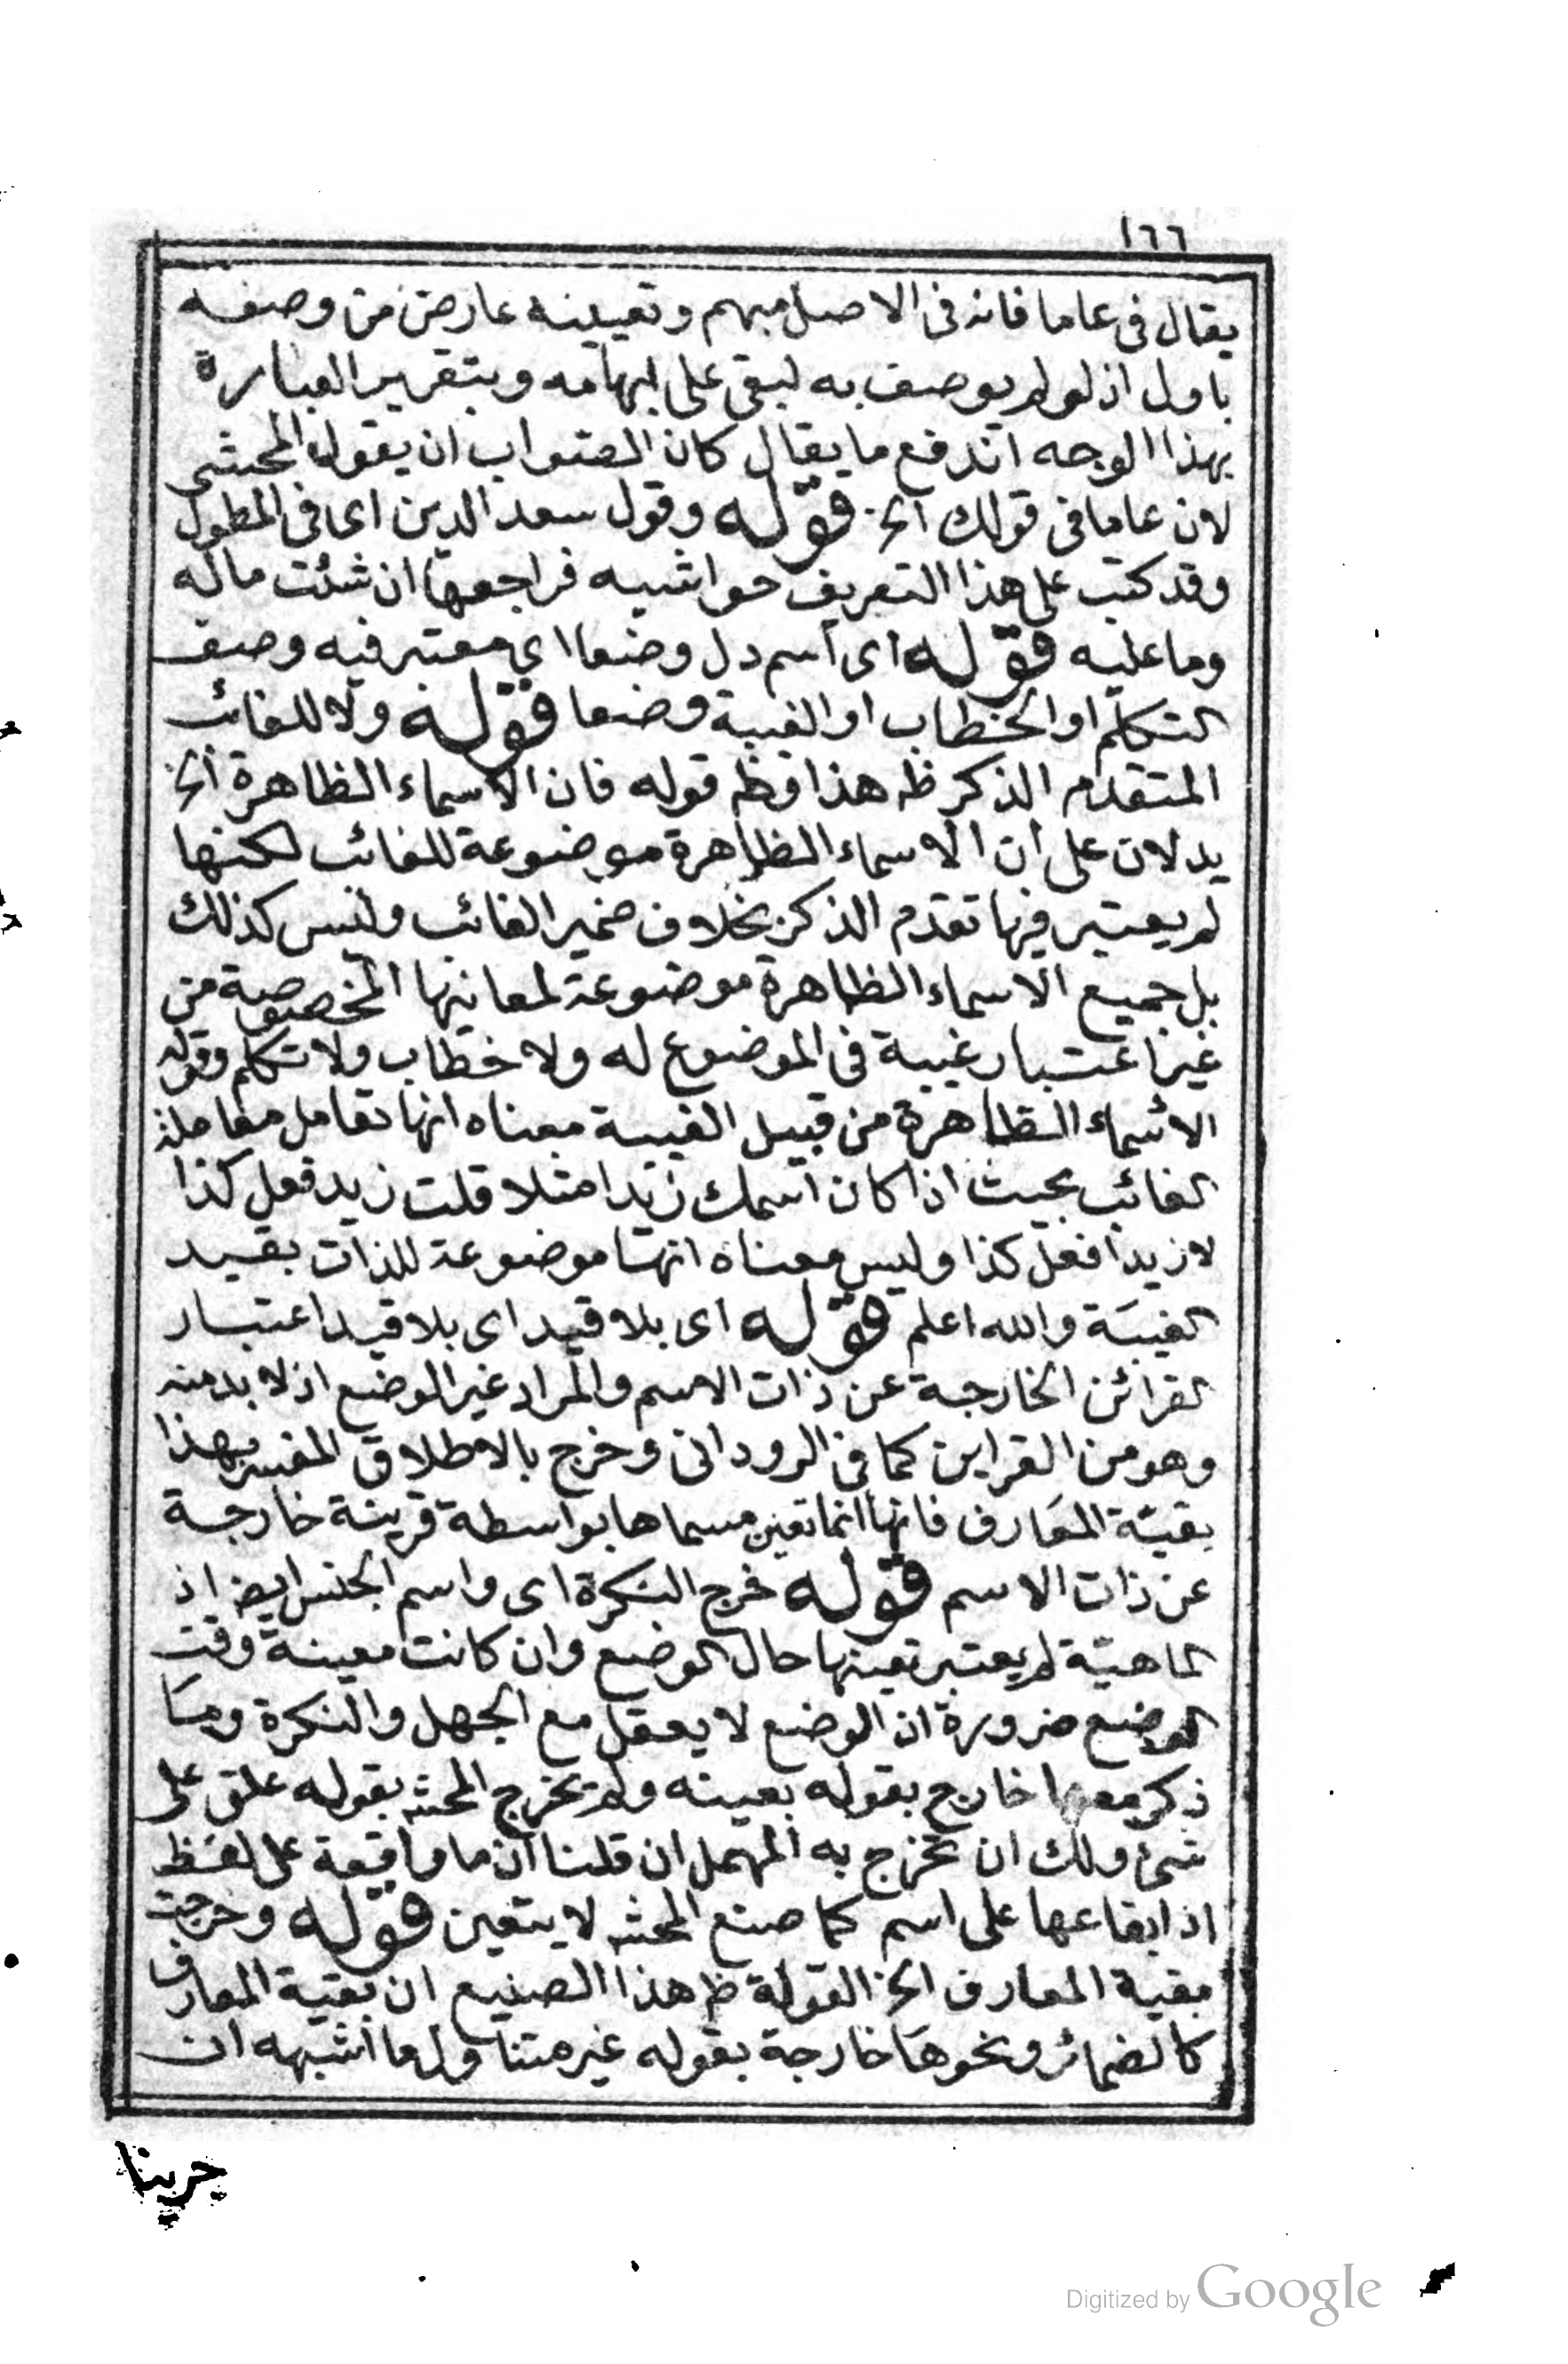 ١٦٦
يقال فى عاما فانه فى الاصل مبهم وتعيينه عارض من وصفه
باول اذ لو لم يوصف به لبقى على ابهامه وبتقرير العبارة
بهذا الوجه اندفع ما يقال كان الصواب ان يقول المحشى
لان عاما فى قولك الخ قوله وقول سعد الدين اى فى المطول
وقد كتب على هذا التعريف حواشيه فراجعها ان شئت ماله
وما عليه قوله اى اسم دل وضعا اي معتبر فيه وصف
التكلم او الخطاب او الغيبة وضعا قوله ولا للغائب
المتقدم الذكر ظ هذا وظ قوله فان الاسماء الظاهرة الخ
يدلان على ان الاسماء الظاهرة موضوعة للغائب لكنها
لم يعتبر فيها تقدم الذكر بخلاف ضمير الغائب وليس كذلك
بل جميع الاسماء الظاهرة موضوعة لمعانيها المخصوصة من
غير اعتبار غيبة فى الموضوع له ولا خطاب ولا تكلم وقوله
الأسماء الظاهرة من قبيل الغيبة معناه انها تعامل معاملة
الغائب بحيث اذا كان اسمك زيدا مثلا قلت زيد فعل كذا
لا زيد افعل كذا وليس معناه انها موضوعة للذات بقيد
الغيبة والله اعلم قوله اى بلا قيد اى بلا قيد اعتبار
القرائن الخارجة عن ذات الاسم والمراد غير الوضع اذ لا بد منه
وهو من القراين كما فى الرودانى وخرج بالاطلاق المفسر بهذا
بقية المعارف فانها انما تعين مسماها بواسطة قرينة خارجة
عن ذات الاسم قوله خرج النكرة اى واسم الجنس ايض اذ
الماهية لم يعتبر تعينها حال الوضع وان كانت معينة وقت
الوضع ضرورة ان الوضع لا يعقل مع الجهل والنكرة وما
ذكر معها خارج بقوله بعينه ولم يخرج المحشى بقوله علق على
شئ ولك ان تخرج به المهمل ان قلنا ان ما واقعة على لفظ
اذ ايقاعها على اسم كما صنع المحشى لا يتعين قوله وخرجت
بقية المعارف الخ القولة ظ هذا الصنيع ان بقية المعارف
كالضمائر ونحوها خارجة بقوله غير متناول ما اشبهه ان
جرينا
Digitized by Google